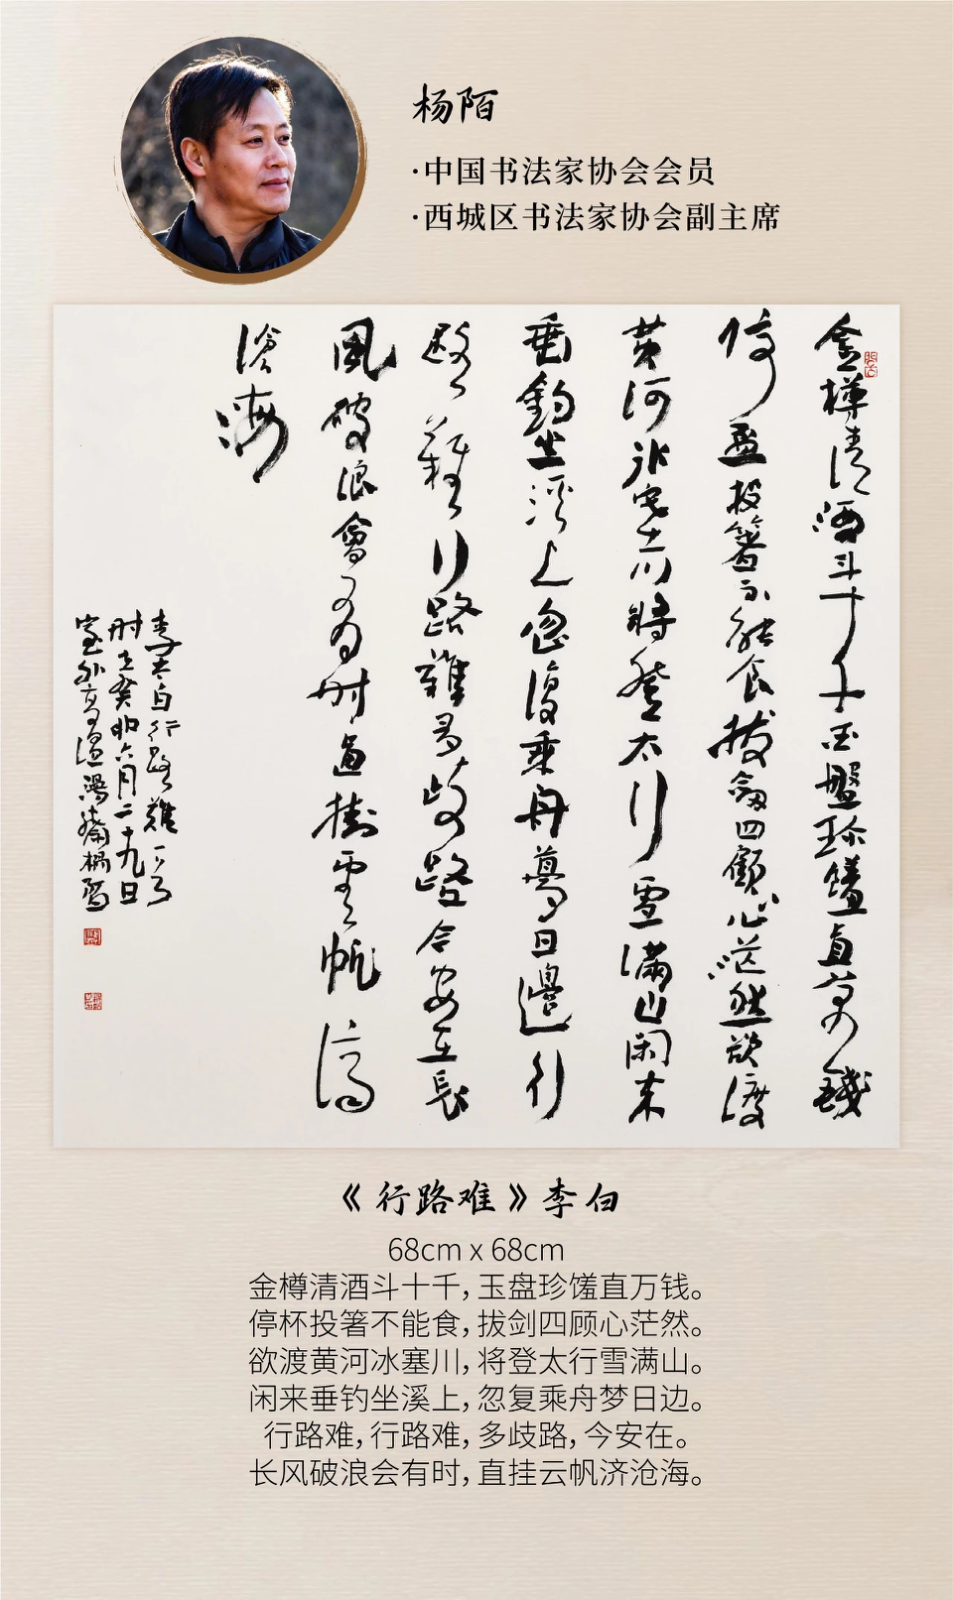 杨陌
·中国书法家协会会员
·西城区书法家协会副主席
金樽清酒斗十千玉盘珍馐直万钱
停盃投箸不能食拔劒四顧心茫然欲渡
黄河冰塞川将登太行雪滿山闲来
垂釣坐溪上忽復乘舟夢日邊行
路難行路難多歧路今安在長
風破浪會有时直掛雲帆濟
滄海
李太白行路難一首
时在癸卯六月二十九日
《行路难》李白
68cm x 68cm
金樽清酒斗十千，玉盘珍馐直万钱。
停杯投箸不能食，拔剑四顾心茫然。
欲渡黄河冰塞川，将登太行雪满山。
闲来垂钓坐溪上，忽复乘舟梦日边。
行路难，行路难，多歧路，今安在。
长风破浪会有时，直挂云帆济沧海。